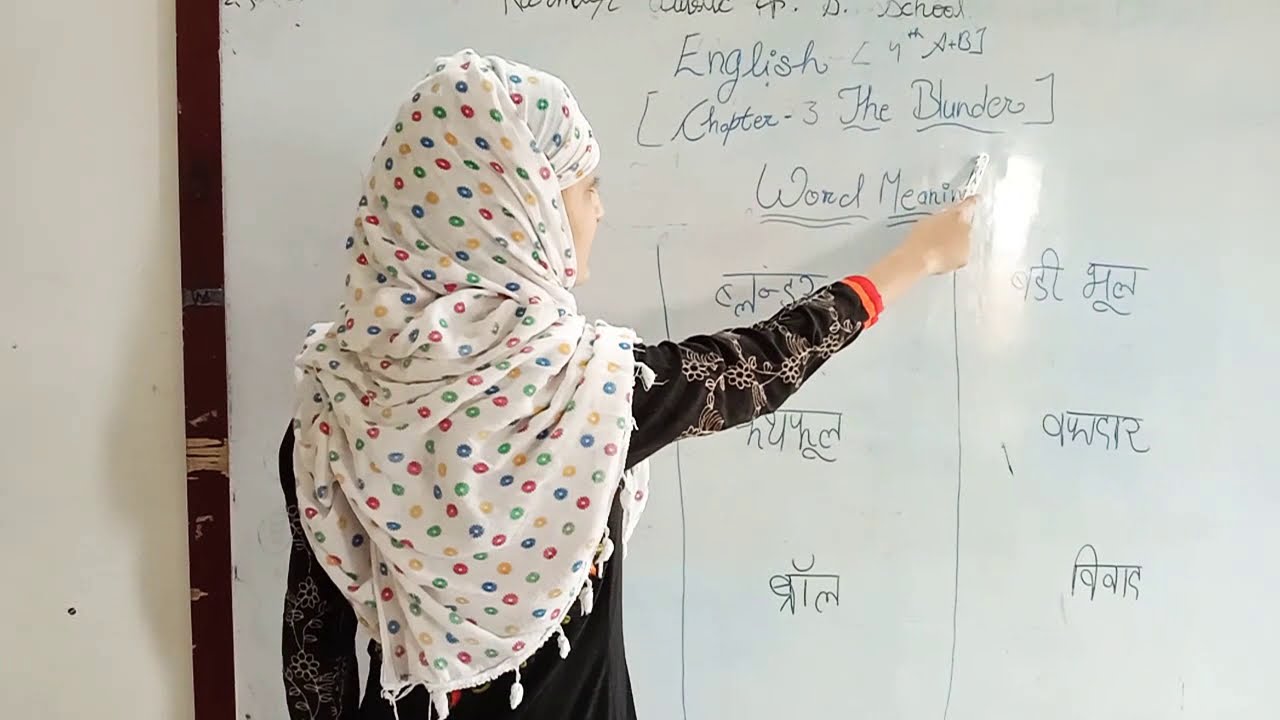 School
English [4th A+B]
[Chapter-3 The Blunder]
Word Meaning
ब्लंन्डर बडी भूल
वफादार
ब्रॉल विवाद